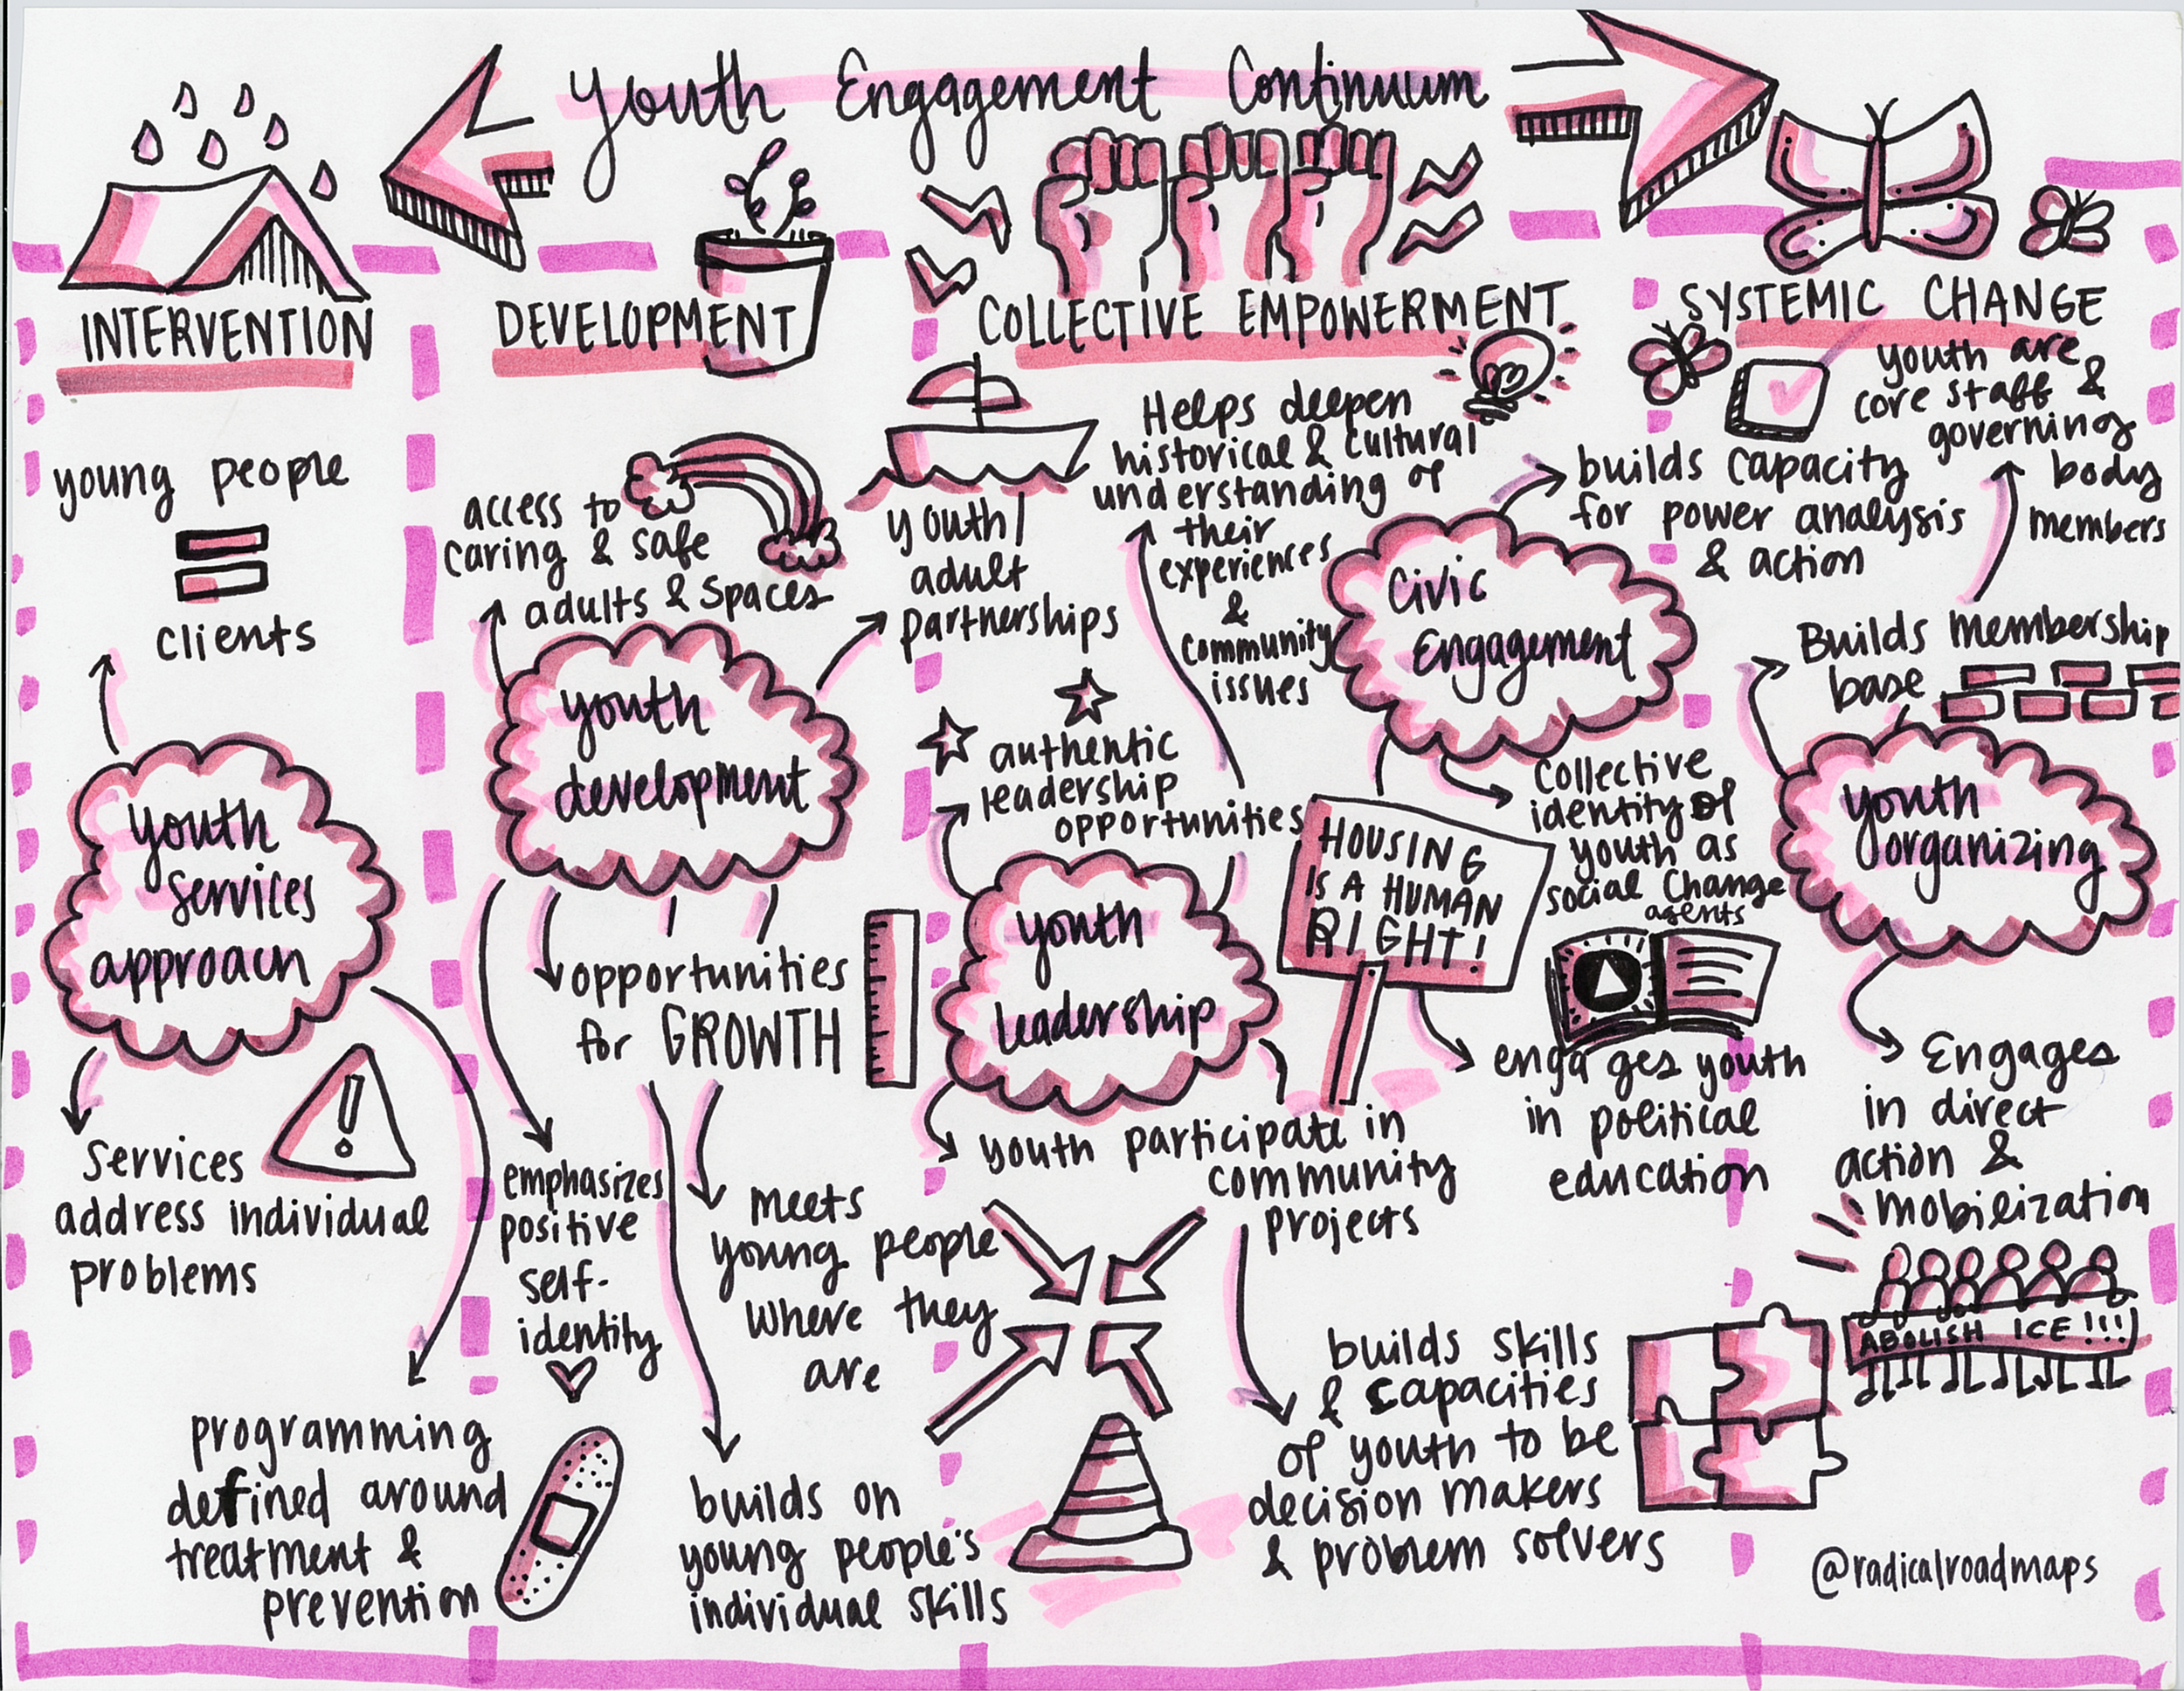 Youth Engagement Continuum
INTERVENTION
young people
clients
youth
services
approach
Services
address individual
problems
programming
defined around
treatment &
prevention
DEVELOPMENT
access to
caring & safe
adults & spaces
youth/
adult
partnerships
youth
development
opportunities
for GROWTH
emphasizes
positive
self-
identity
meets
young people
where they
are
builds on
young people's
individual skills
COLLECTIVE EMPOWERMENT
Helps deepen
historical & cultural
understanding of
their
experiences
&
community
issues
authentic
leadership
opportunities
youth
leadership
youth participate in
community
projects
builds skills
& capacities
of youth to be
decision makers
& problem solvers
Civic
Engagement
builds capacity
for power analysis
& action
collective
identity of
youth as
social change
agents
HOUSING
IS A HUMAN
RIGHT!
engages youth
in political
education
SYSTEMIC CHANGE
youth are
core staff &
governing
body
members
Builds membership
base
youth
organizing
Engages
in direct
action &
mobilization
ABOLISH ICE!!!
@radicalroadmaps